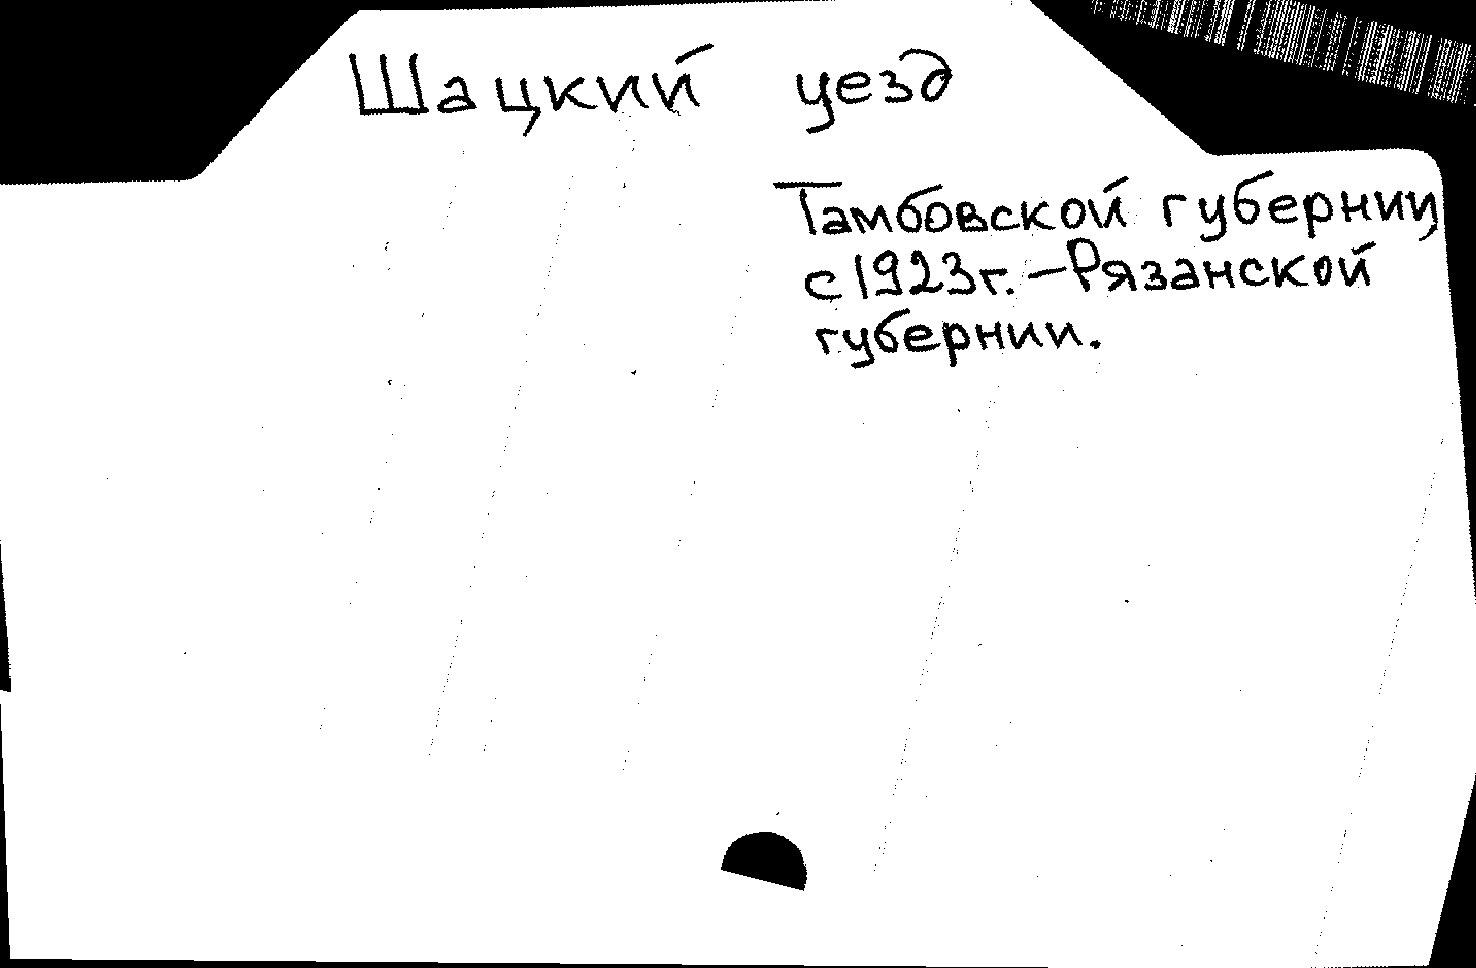 Шацкий уезд
Тамбовской губернии,
с 1923г. – Рязанской
губернии.